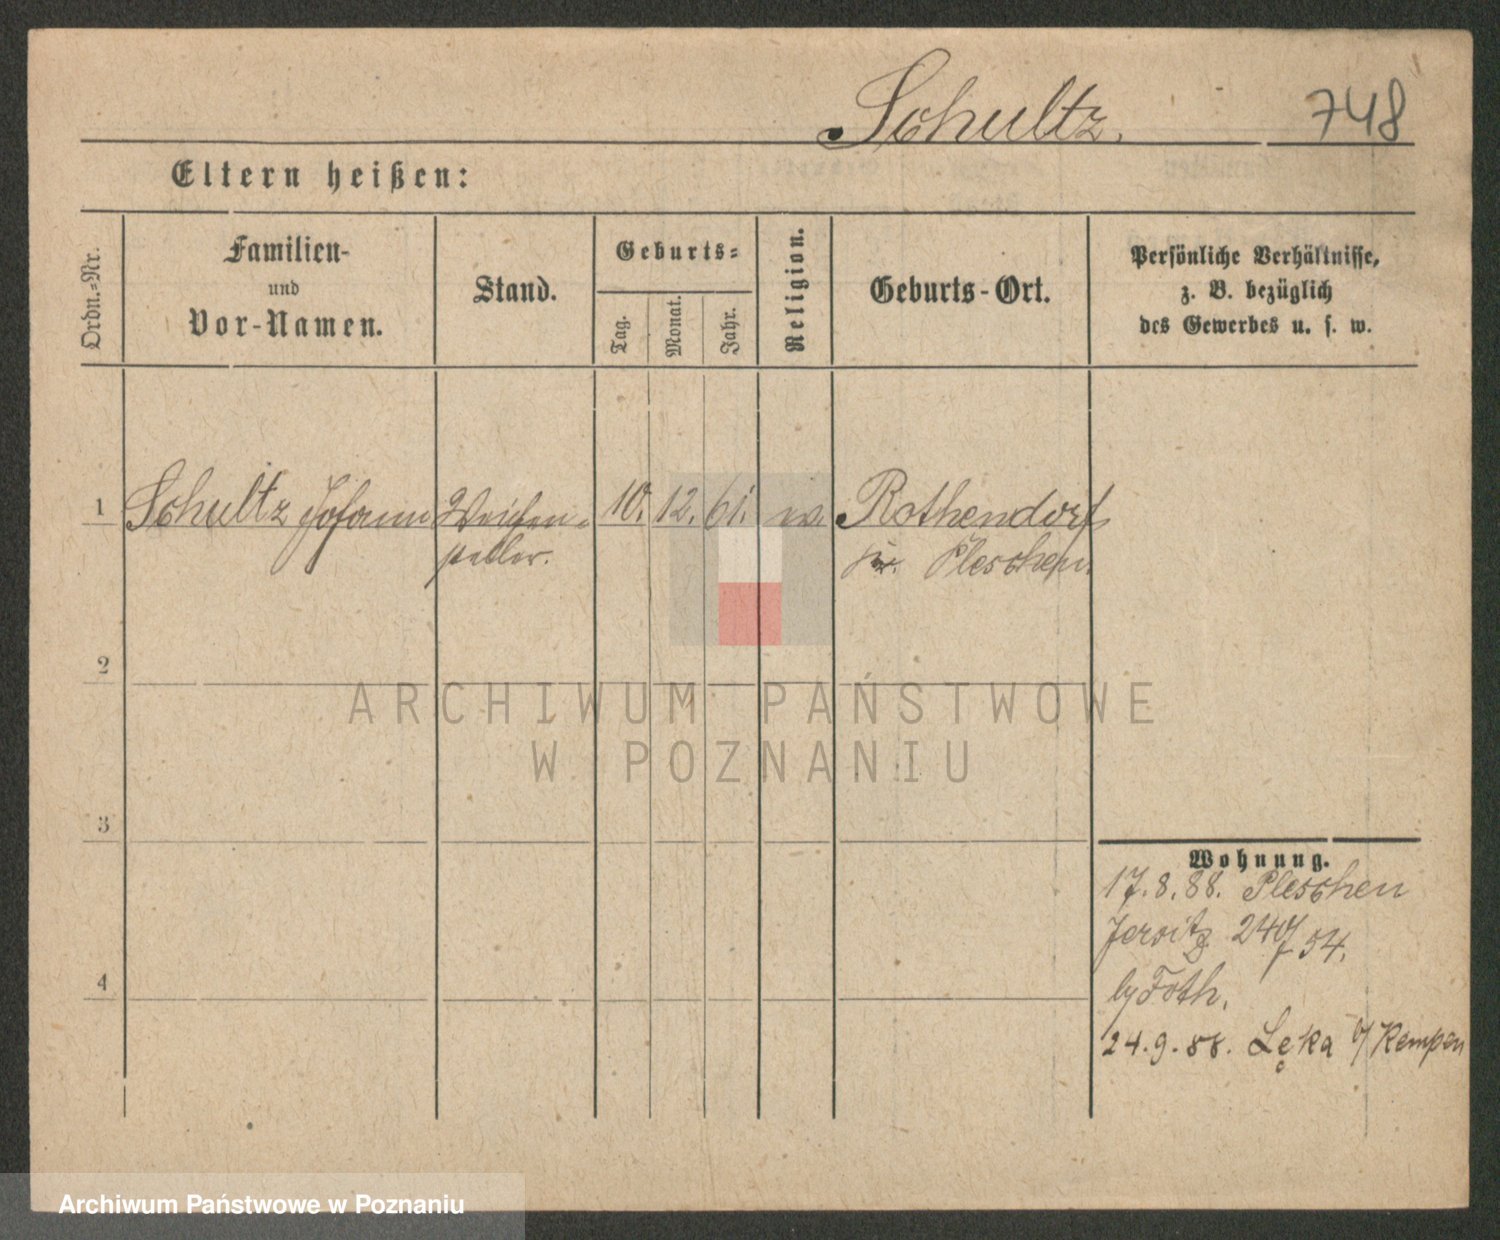 Schultz. 748
Eltern heißen:
Ordn.-Nr.
Familien-
und
Vor-Namen.
Stand.
Geburts-
Tag.
Monat.
Jahr.
Religion.
Geburts-Ort.
Persönliche Verhältnisse,
z. B. bezüglich
des Gewerbes u. s. w.
1 Schultz Johann Weichen- 10. 12. 61. Rothendorf
steller. Pleschen.
2
3
4
Wohnung.
17.8.88. Pleschen
Jersitz 240/54.
by Foth.
24.9.88. Łęka b/ Kempen
ARCHIWUM PAŃSTWOWE
W POZNANIU
Archiwum Państwowe w Poznaniu